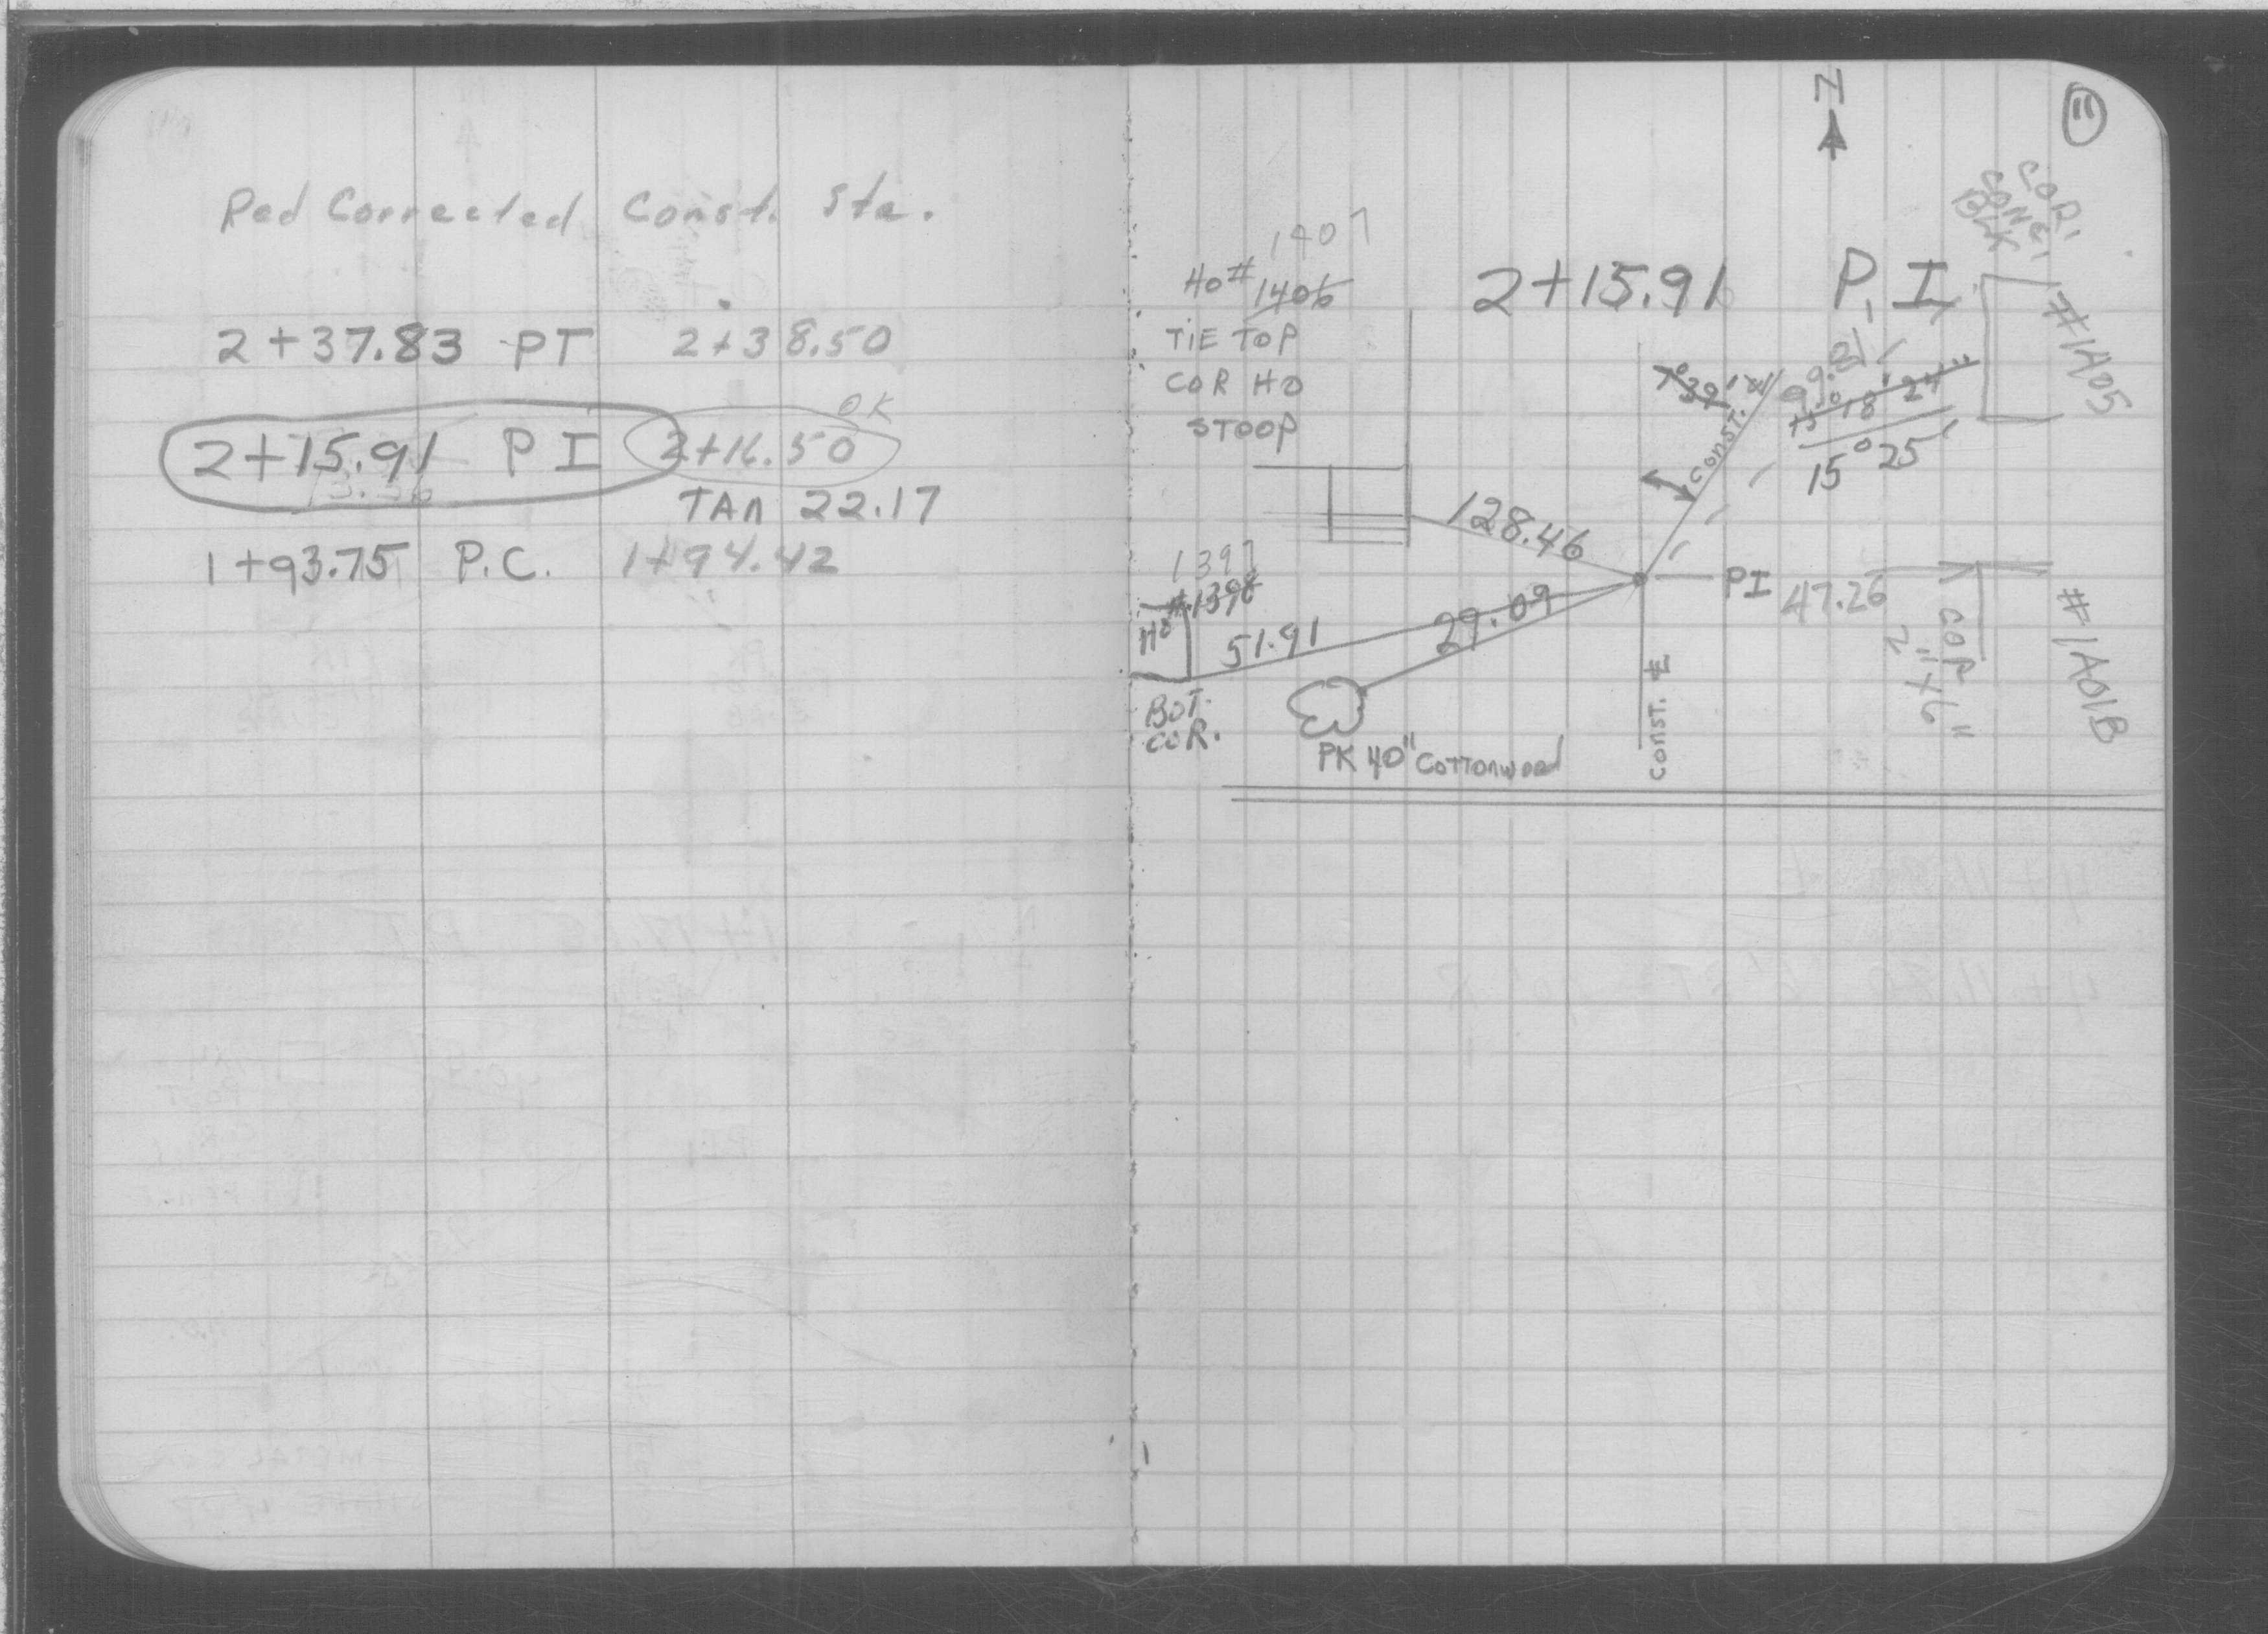 Red Corrected Const. Sta.
2+37.83 PT 2+38.50
OK
2+15.91 PI 2+16.50
TAN 22.17
1+93.75 P.C. 1+94.42
11
N
COR.
CONC.
BLK
1407
HO# 1406
2+15.91 P.I.
TIE TOP
COR HO
STOOP
#1405
99.81
15° 18' 24"
15° 25'
CONST.
128.46
PI
47.26
1397
#1398
HO
51.91
29.09
COR
2"x6"
#1401B
BOT.
COR.
PK 40" COTTONWOOD
CONST. ℄